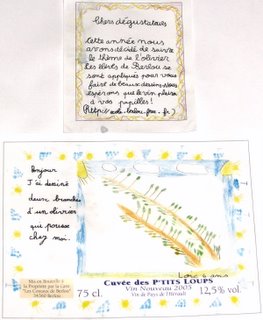 Chers dégustateurs
Cette année nous
avons décidé de suivre
le thème de l'olivier
Les élèves de Berlou se
sont appliqués pour vous
faire de beaux dessins. Nous
espérons que le vin plaira
à vos papilles!
Bonjour
J'ai dessiné
deux branches
d'un olivier
qui pousse
chez moi.
Loïc 6 ans
Mis en Bouteille à
la Propriété par la Cave
"Les Coteaux de Berlou"
34360 Berlou
75 cl.
Cuvée des P'TITS LOUPS
Vin Nouveau 2005
Vin de Pays de l'Hérault
12,5% vol.